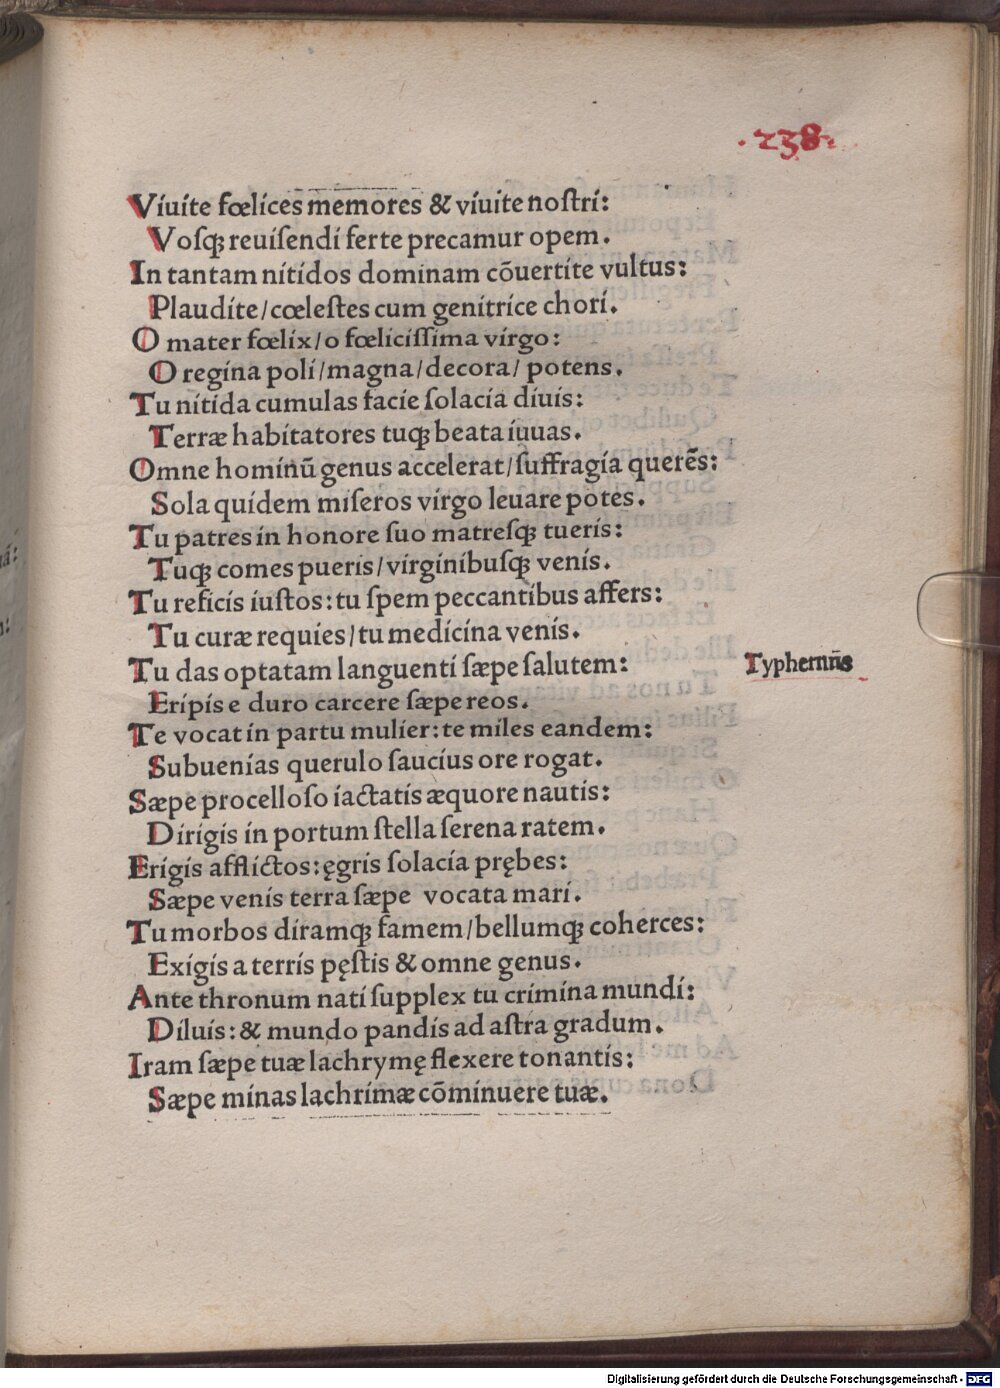 .238.
Viuite fœlices memores & viuite noſtri:
Voſqꝫ reuiſendi ferte precamur opem.
In tantam nitidos dominam cõuertite vultus:
Plaudite/cœleſtes cum genitrice chori.
O mater fœlix/o fœliciſſima virgo:
O regina poli/magna/decora/ potens.
Tu nitida cumulas facie ſolacia diuis:
Terræ habitatores tuqꝫ beata iuuas.
Omne hominũ genus accelerat/ſuffragia querẽs:
Sola quidem miſeros virgo leuare potes.
Tu patres in honore ſuo matreſqꝫ tueris:
Tuqꝫ comes pueris/virginibuſqꝫ venis.
Tu reficis iuſtos:tu ſpem peccantibus affers:
Tu curæ requies/tu medicina venis.
Tu das optatam languenti ſæpe ſalutem:
Typhernũs
Eripis e duro carcere ſæpe reos.
Te vocat in partu mulier:te miles eandem:
Subuenias querulo ſaucius ore rogat.
Sæpe procelloſo iactatis æquore nautis:
Dirigis in portum ſtella ſerena ratem.
Erigis afflictos:ęgris ſolacia prębes:
Sæpe venis terra ſæpe vocata mari.
Tu morbos diramqꝫ famem/bellumqꝫ coherces:
Exigis a terris pęſtis & omne genus.
Ante thronum nati ſupplex tu crimina mundi:
Diluis:& mundo pandis ad aſtra gradum.
Iram ſæpe tuæ lachrymę flexere tonantis:
Sæpe minas lachrimæ cõminuere tuæ.
Digitalisierung gefördert durch die Deutsche Forschungsgemeinschaft - DFG